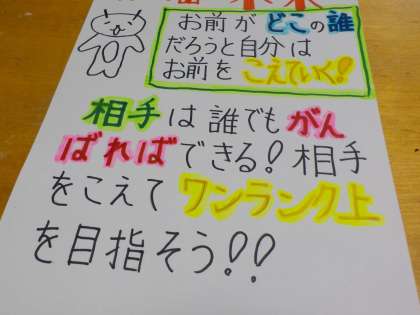 お前がどこの誰
だろうと自分は
お前をこえていく!
相手は誰でもがん
ばればできる!相手
をこえてワンランク上
を目指そう!!